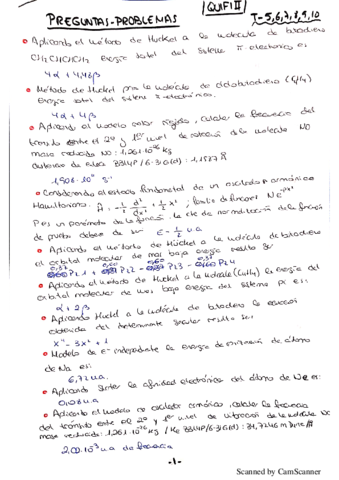 PREGUNTAS-PROBLEMAS
QUIFI II
T-5,6,7,8,9,10
Aplicando el método de Huckel a la molécula de butadieno
CH2CHCHCH2 energía total del sistema π-electrónico es
4α + 4,48β
Método de Huckel para la molécula de ciclobutadieno (C4H4)
Energía total del sistema π-electrónico.
4α + 4β
Aplicando el modelo rotor rígido, calcular la frecuencia del
tránsito entre el 2º y 1er nivel de rotación de la molécula NO
masa reducida NO: 1,261·10^-26 kg
B3LYP/6-31G(d): 1,1587 Å
s^-1
Considerando el estado fundamental de un oscilador armónico
Hamiltoniano. Ĥ = -1/2 d²/dx² + 1/2 x² ; función de Ne^-px²
P es un parámetro de la función. la cte de normalización de la función
de prueba deberá ser E = 1/2 u.a
Aplicando el método de Hückel a la molécula de butadieno
el orbital molecular de más baja energía resulta ser
0,37 0,60 0,60 0,37
Aplicando el método de Hückel a la molécula (C4H4) la energía del
orbital molecular de más baja energía del sistema pi es:
α + 2β
Aplicando Huckel a la molécula de butadieno la ecuación
obtenida del determinante secular resulta ser:
x⁴ - 3x² + 1
Modelo de e- independiente la energía de ionización del átomo
de Na es:
6,72 u.a.
Aplicando Slater la afinidad electrónica del átomo de Ne es:
0,028 u.a
Aplicando el modelo oscilador armónico, calcular la frecuencia
del tránsito entre el 2º y 1er nivel de vibración de la molécula NO
masa reducida: 1,261·10^-26 kg / Ke B3LYP/6-31G(d):
de frecuencia
-1-
Scanned by CamScanner